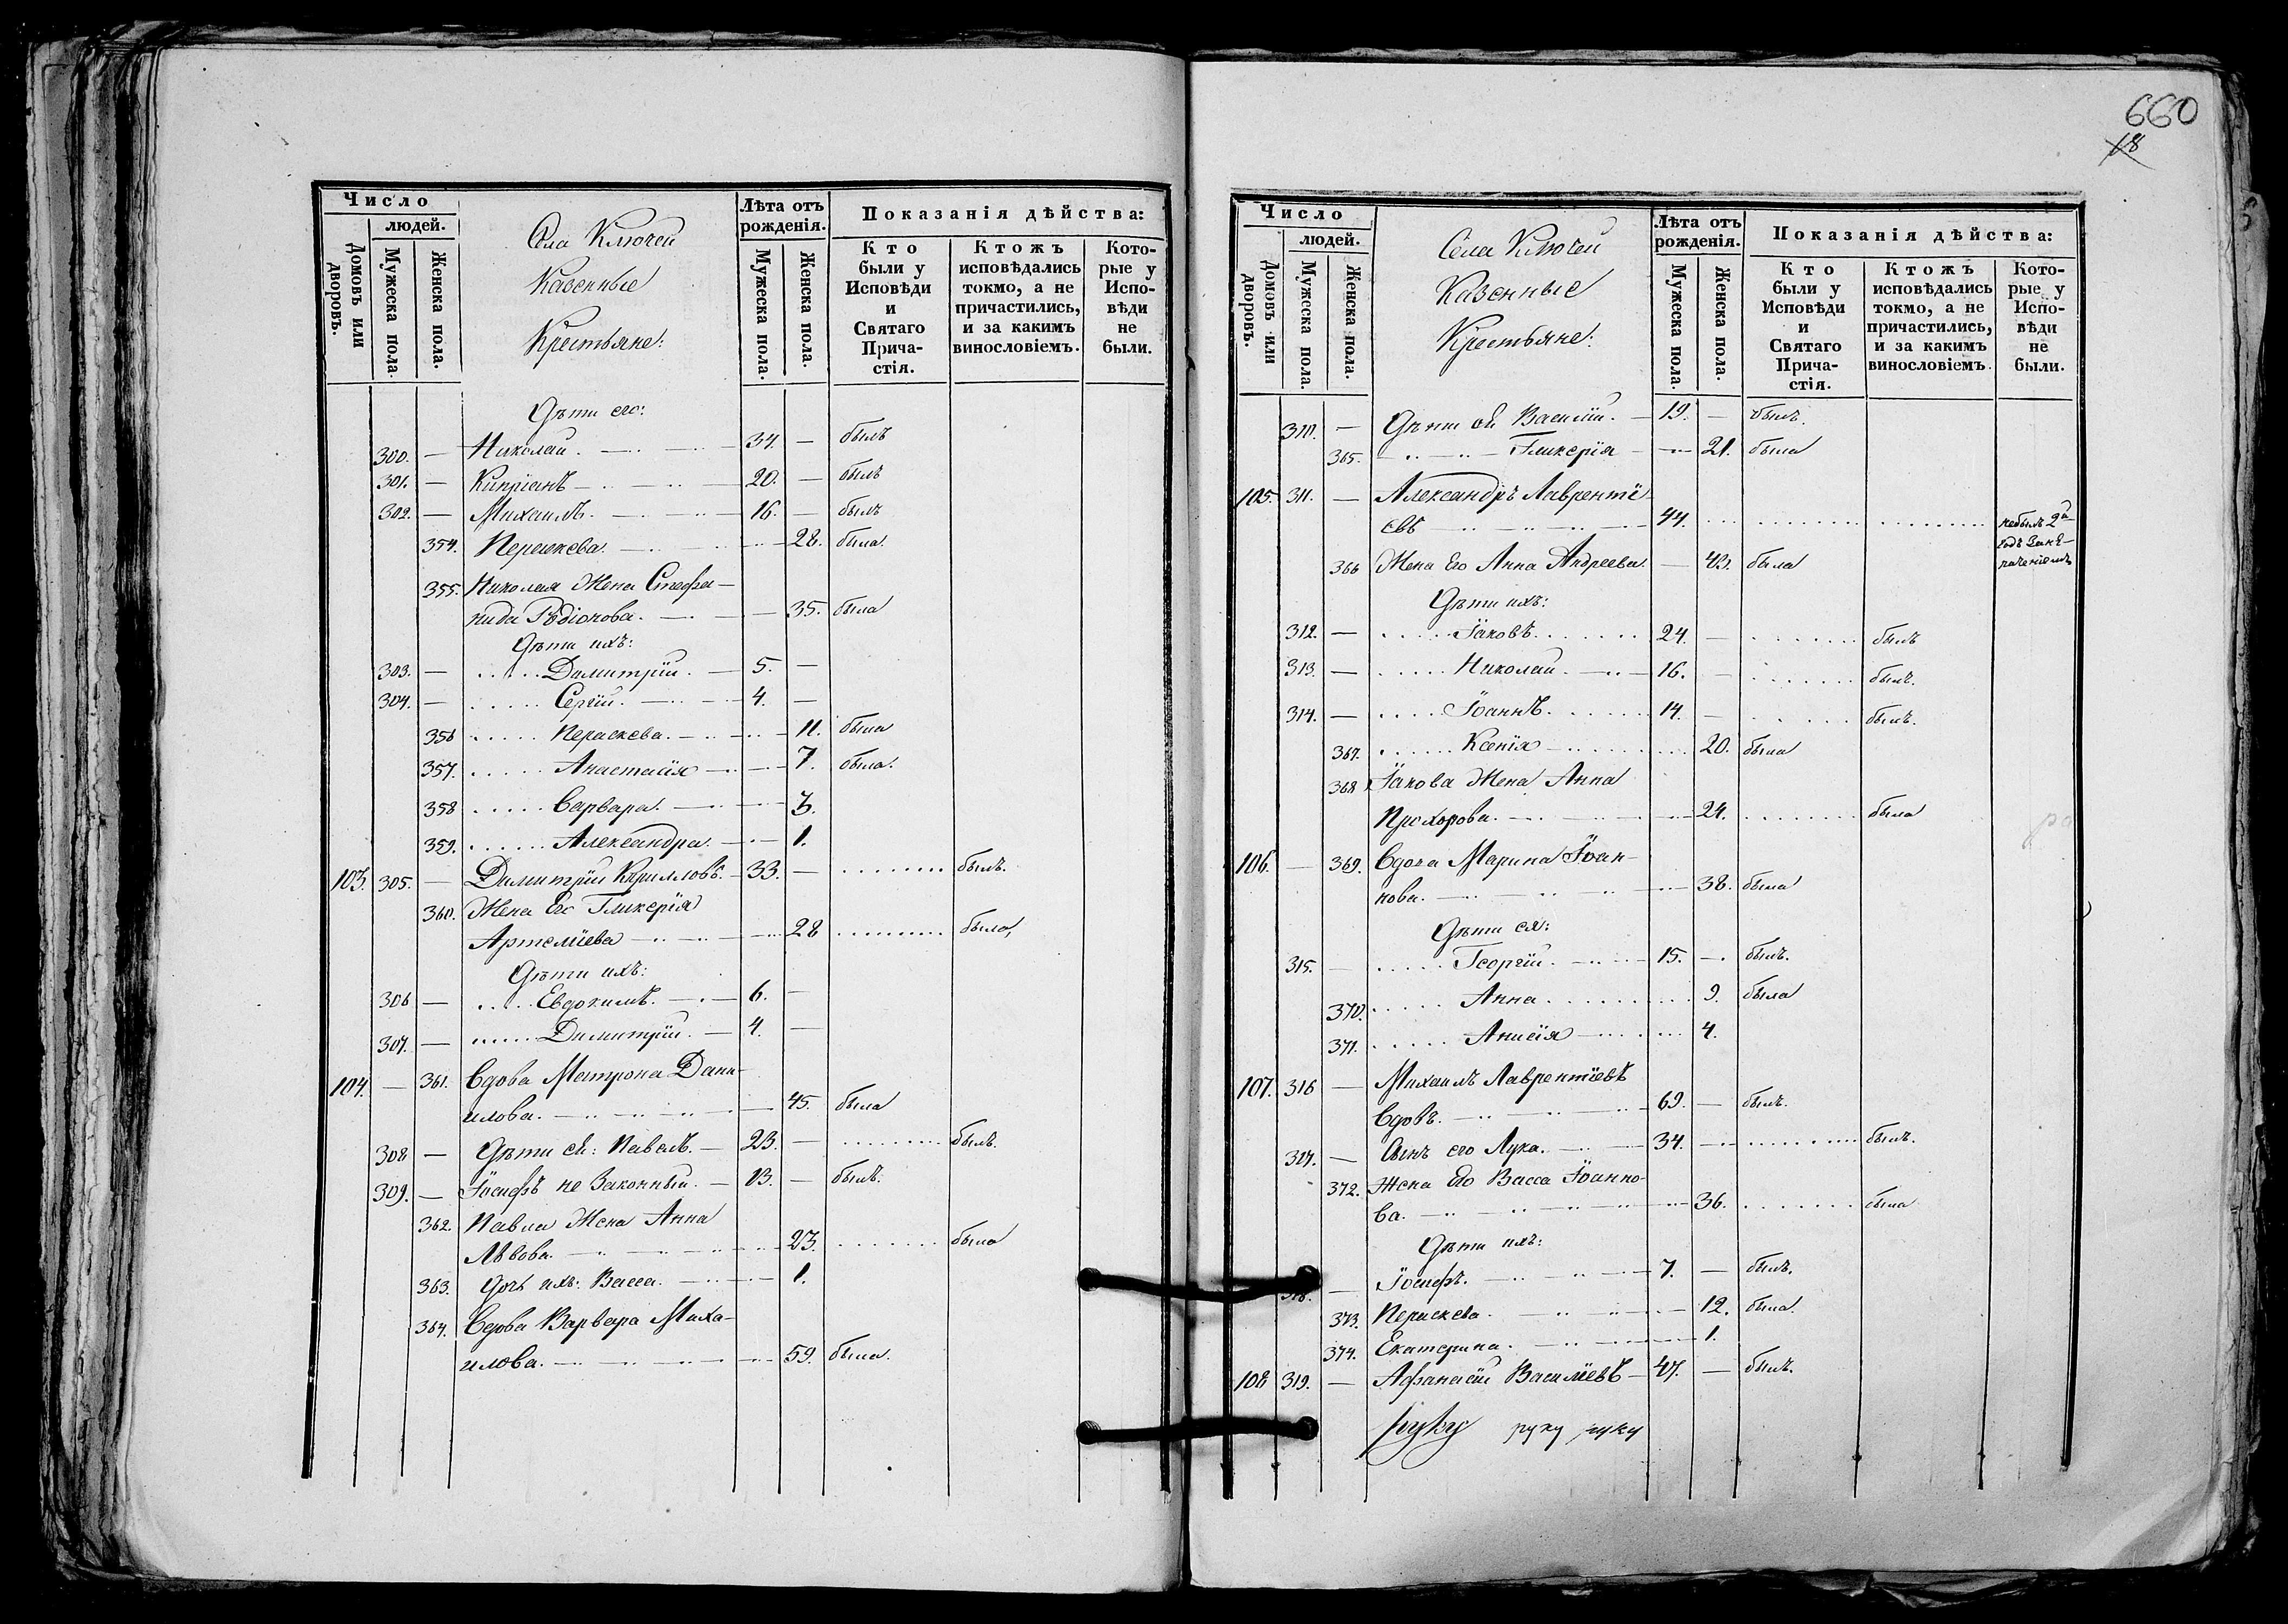 Число
людей.
Домовъ или дворовъ.
Мужеска пола.
Женска пола.
Села Ключей
Казенные
Крестьяне:
Лѣта отъ рожденія.
Мужеска пола.
Женска пола.
Показанія дѣйства:
Кто были у Исповѣди и Святаго Прича-стія.
Ктожъ исповѣдались токмо, а не причастились, и за какимъ винословіемъ.
Кото-рые у Испо-вѣди не были.
Дѣти его:
300. — Николай. — 34. — былъ
301. — Кипріанъ — 20. — былъ
302. — Михаилъ. — 16. — былъ
354. Параскева. — 28. была
355. Николая Жена Стефа-
нида Родіонова. — 35. была
Дѣти ихъ:
303. — Димитрій. — 5. —
304. — Сергій. — 4. —
356 Параскева. — 11. была
357. Анастасія — 7. была.
358 Варвара. — 3.
359. Александра. — 1.
103. 305. — Димитрій Кирилловъ. — 33. — былъ.
360. Жена Его Гликерія
Артеміева — 28 была,
Дѣти ихъ:
306 — Евдокимъ. — 6. —
307. — Димитрій. — 4. —
104. — 361. Вдова Матрона Дани-
илова. — 45. была
308 — Дѣти ея: Павелъ. — 23. — былъ.
309. — Іосифъ не Законный. — 13. — былъ.
362. Павла Жена Анна
Львова. — 23. была
363. Дочь ихъ: Васса. — 1.
364. Вдова Варвара Миха-
илова. — 59. была.
660
18
Число
людей.
Домовъ или дворовъ.
Мужеска пола.
Женска пола.
Села Ключей
Казенные
Крестьяне:
Лѣта отъ рожденія.
Мужеска пола.
Женска пола.
Показанія дѣйства:
Кто были у Исповѣди и Святаго Прича-стія.
Ктожъ исповѣдались токмо, а не причастились, и за какимъ винословіемъ.
Кото-рые у Испо-вѣди не были.
310. — Дѣти ей Василій. — 19. — былъ.
365. Гликерія — 21. была
105. 311. — Александръ Лаврентіе-
евъ — 44. небылъ 2й
годъ
366 Жена Его Анна Андреева. — 43. была
Дѣти ихъ:
312. — Іаковъ. 24. — былъ
313. — Николай. — 16. — былъ.
314. — Іоаннъ. 14. — былъ.
367. Ксенія — 20. была
368 Іакова Жена Анна
Прохорова. — 24. была
106. — 369. Вдова Марина Іоан-
нова. — 38. была
Дѣти ея:
315. — Георгій. — 15. — былъ.
370. Анна. 9. была
371. Анисія — 4.
107. 316 — Михаилъ Лаврентіевъ
Вдовъ. — 69. — былъ.
317. — Сынъ его Лука. — 34. — былъ.
372. Жена Его Васса Іоанно-
ва. — 36. была
Дѣти ихъ:
318. — Іосифъ. — 7. — былъ.
373. Параскева. — 12. была.
374. Екатерина. — 1.
108 319. — Афанасій Василіевъ — 47. — былъ.
руку руку руку